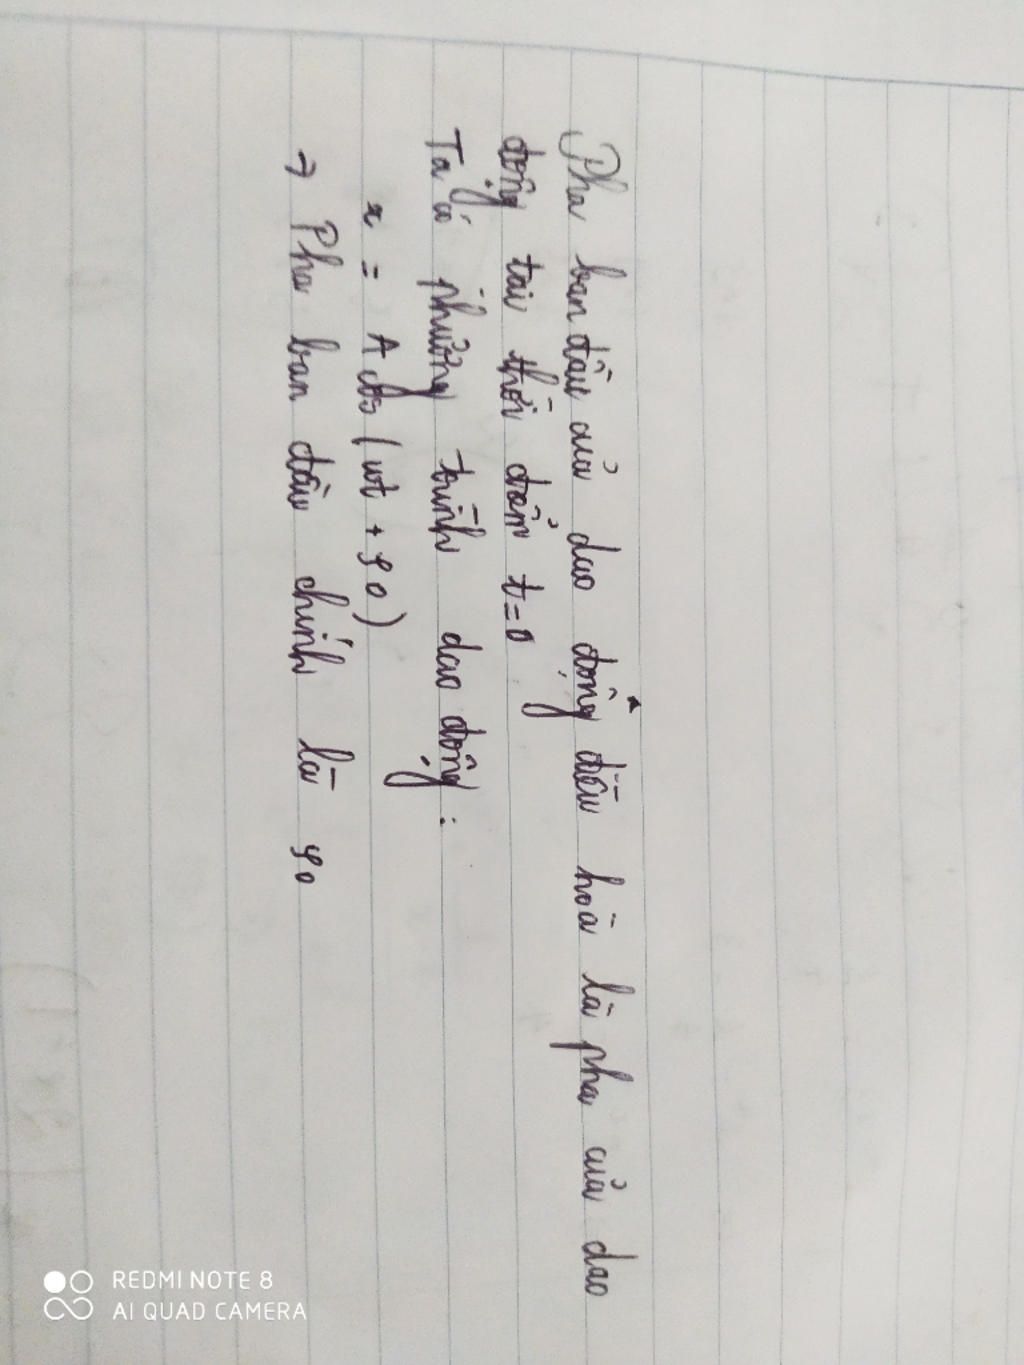 Pha ban đầu của dao động điều hoà là pha của dao
động tại thời điểm t=0
Ta có phương trình dao động :
x = A cos (ωt + φ0)
→ Pha ban đầu chính là φ0
REDMI NOTE 8
AI QUAD CAMERA